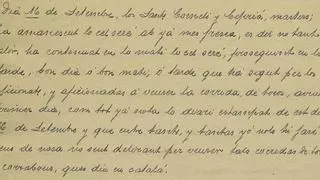 dia 16 de Setembre, los Sants Corneli y Cebriá, martres;
ha amanescut lo cel seré ab ya mes fresca, es der no tanta
ha continuat en lo matí lo cel seré; prosseguint en la
tarde, bon dia ó bon matí; ó tarde que ha sigut per los
aficionats á veurer la corrida de bous, avuy
com tot ya notes lo diari estampat de est di
de Setembre y que entre tants, y tantas yo no hi faré
de nosa no sent delerant per veurer tals corridas de bo
corrabous, ques diu en catalá.